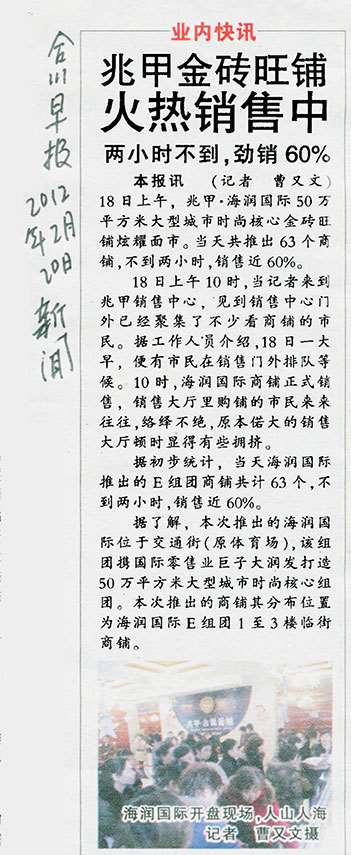 业内快讯
兆甲金砖旺铺
火热销售中
两小时不到，劲销60%
本报讯 （记者 曹又文）
18日上午，兆甲·海润国际50万
平方米大型城市时尚核心金砖旺
铺炫耀面市。当天共推出63个商
铺，不到两小时，销售近60%。
18日上午10时，当记者来到
兆甲销售中心，见到销售中心门
外已经聚集了不少看商铺的市
民。据工作人员介绍，18日一大
早，便有市民在销售门外排队等
候。10时，海润国际商铺正式销
售，销售大厅里购铺的市民来来
往往，络绎不绝，原本偌大的销售
大厅顿时显得有些拥挤。
据初步统计，当天海润国际
推出的E组团商铺共计63个，不
到两小时，销售近60%。
据了解，本次推出的海润国
际位于交通街（原体育场），该组
团携国际零售业巨子大润发打造
50万平方米大型城市时尚核心组
团。本次推出的商铺其分布位置
为海润国际E组团1至3楼临街
商铺。
海润国际开盘现场，人山人海
记者 曹又文摄
合川早报
2012
年2月
20日
新闻